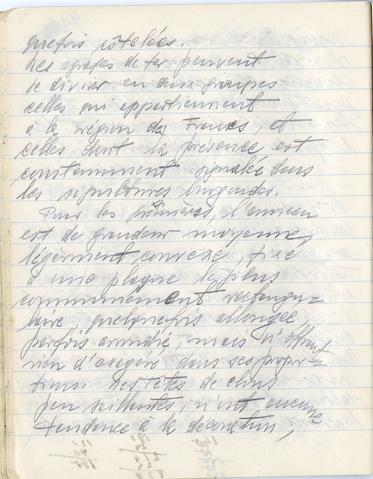 quefois côtelées.
Les agrafes de fer peuvent
se diviser en deux groupes:
celles qui appartiennent
à la région des Francs, et
celles dont la présence est
constamment signalée dans
les sépultures burgondes.
Pour les premières, l'anneau
est de grandeur moyenne,
légèrement convexe, fixé
à une plaque le plus
communément rectangu-
laire, quelquefois allongée,
parfois arrondie, mais n'offrant
rien d'exagéré dans ses propor-
tions. Les têtes de clous
peu saillantes, n'ont aucune
tendance à la décoration,